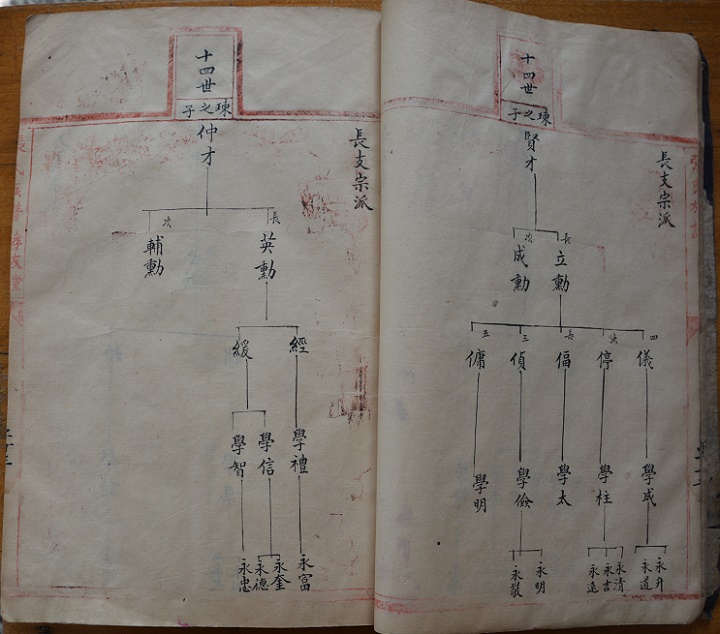 十四世
㻋之子
賢才
長支宗派
長
立勳
次
成勳
四
儀
次
停
長
偪
三
偵
五
傭
學成
學柱
學太
學儉
學明
永升
永道
永清
永吉
永遠
永明
十四世
仲才
長支宗派
長
英勳
次
輔勳
經
緩
學禮
學信
學智
永富
永奎
永德
永忠